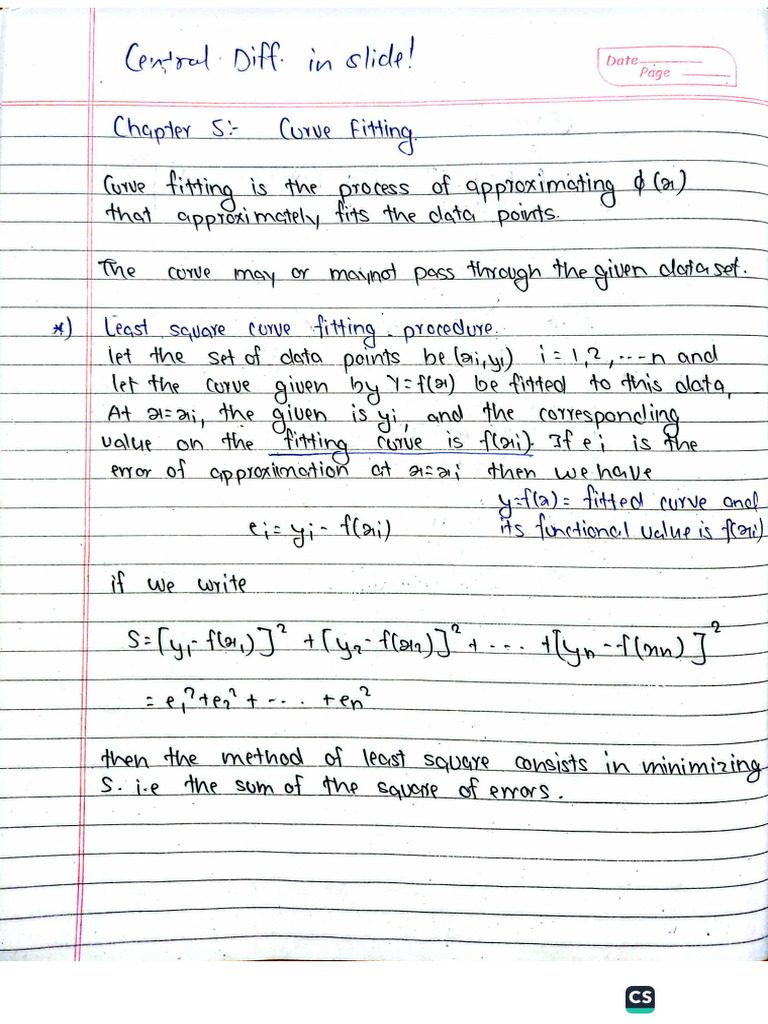 Central Diff. in slide!
Date
Page
Chapter 5:- Curve Fitting.
Curve fitting is the process of approximating ϕ(x)
that approximately fits the data points.
The curve may or maynot pass through the given data set.
*) Least square curve fitting procedure.
let the set of data points be (xi,yi) i=1,2,...n and
let the curve given by Y=f(x) be fitted to this data,
At x=xi, the given is yi, and the corresponding
value on the fitting curve is f(xi). If ei is the
error of approximation at x=xi then we have
y=f(x)= fitted curve and
ei=yi-f(xi) its functional value is f(xi)
if we write
S=[y1-f(x1)]²+[y2-f(x2)]²+...+[yn-f(xn)]²
=e1²+e2²+...+en²
then the method of least square consists in minimizing
S. i.e the sum of the square of errors.
CS